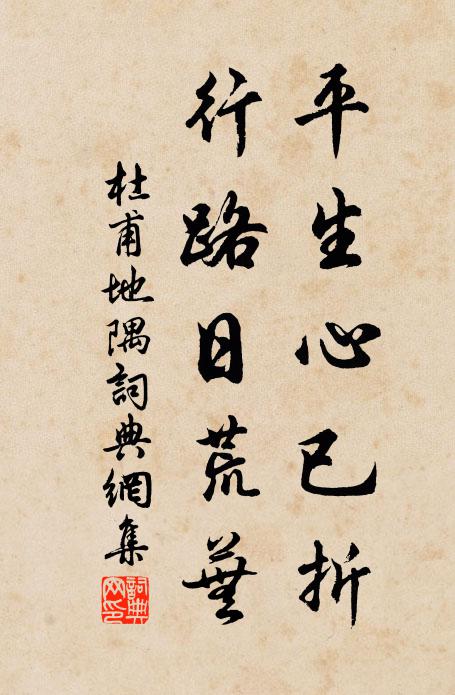 平生心已折
行路日荒蕪
杜甫地隅詞典網集
詞典網印